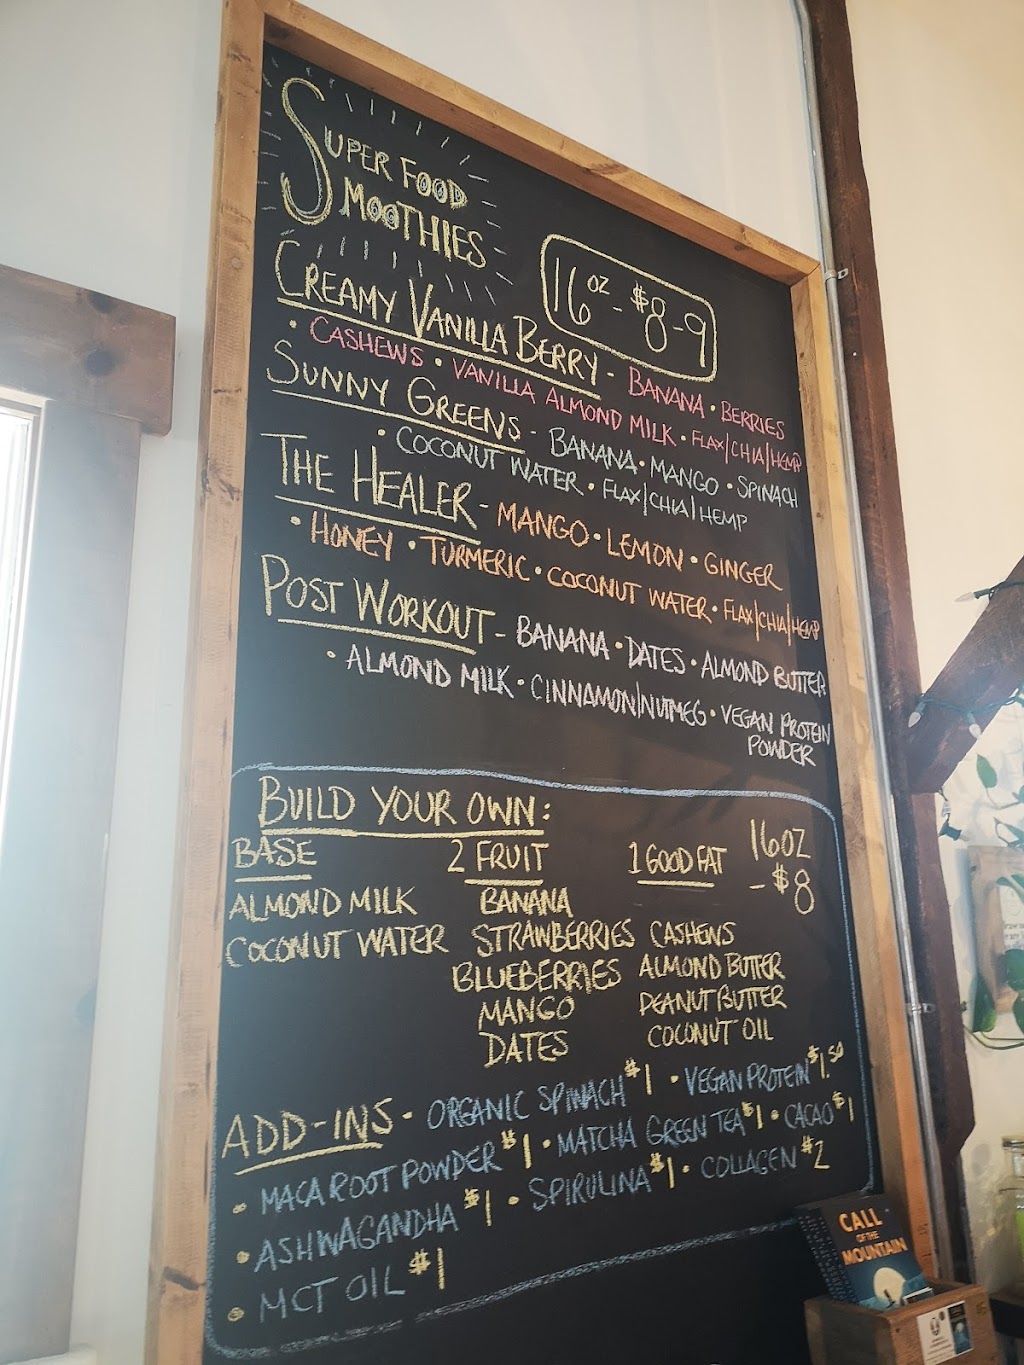 SUPER FOOD
SMOOTHIES
16 OZ - $8-9
CREAMY VANILLA BERRY - BANANA • BERRIES
• CASHEWS • VANILLA ALMOND MILK • FLAX/CHIA/HEMP
SUNNY GREENS - BANANA • MANGO • SPINACH
• COCONUT WATER • FLAX/CHIA/HEMP
THE HEALER - MANGO • LEMON • GINGER
• HONEY • TURMERIC • COCONUT WATER • FLAX/CHIA/HEMP
POST WORKOUT - BANANA • DATES • ALMOND BUTTER
• ALMOND MILK • CINNAMON/NUTMEG • VEGAN PROTEIN
POWDER
BUILD YOUR OWN:
16OZ
- $8
BASE
ALMOND MILK
COCONUT WATER
2 FRUIT
BANANA
STRAWBERRIES
BLUEBERRIES
MANGO
DATES
1 GOOD FAT
CASHEWS
ALMOND BUTTER
PEANUT BUTTER
COCONUT OIL
ADD-INS • ORGANIC SPINACH $1 • VEGAN PROTEIN $1.50
• MACA ROOT POWDER $1 • MATCHA GREEN TEA $1 • CACAO $1
• ASHWAGANDHA $1 • SPIRULINA $1 • COLLAGEN $2
• MCT OIL $1
CALL
OF THE
MOUNTAIN